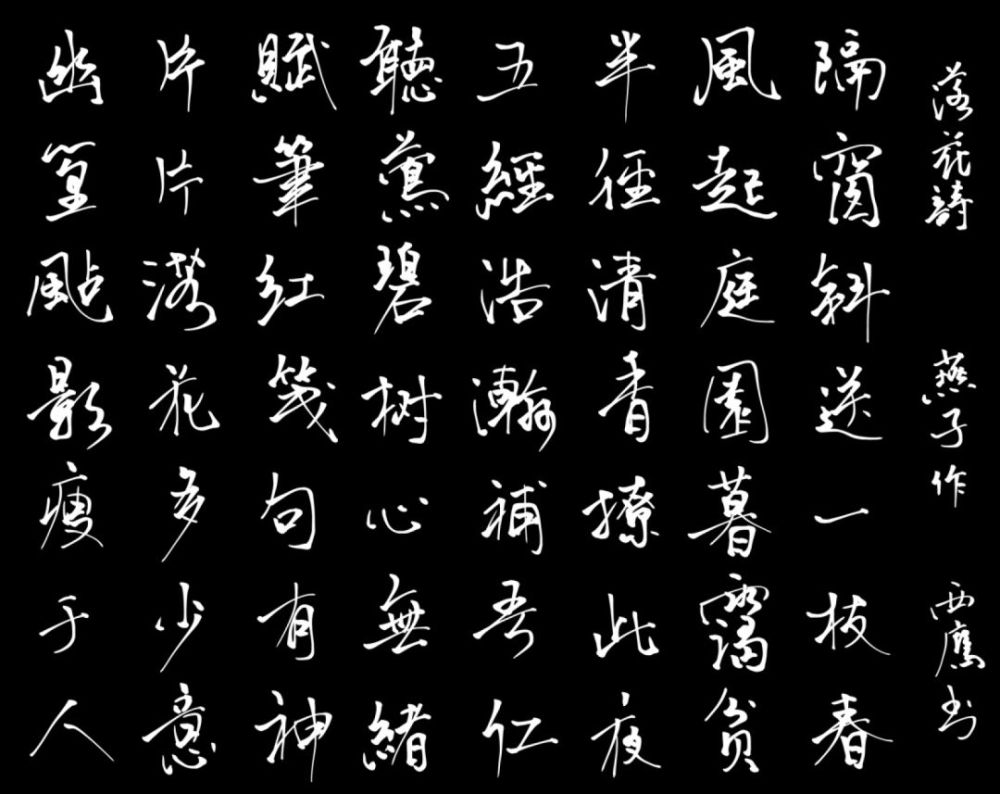 落花詩 燕子作 西鷹书
隔窗斜送一枝春
風起庭園暮靄貧
半徑清香撩此夜
五經浩瀚補吾仁
聽鶯碧樹心無緒
賦筆紅箋句有神
片片落花多少意
幽篁颭影瘦于人